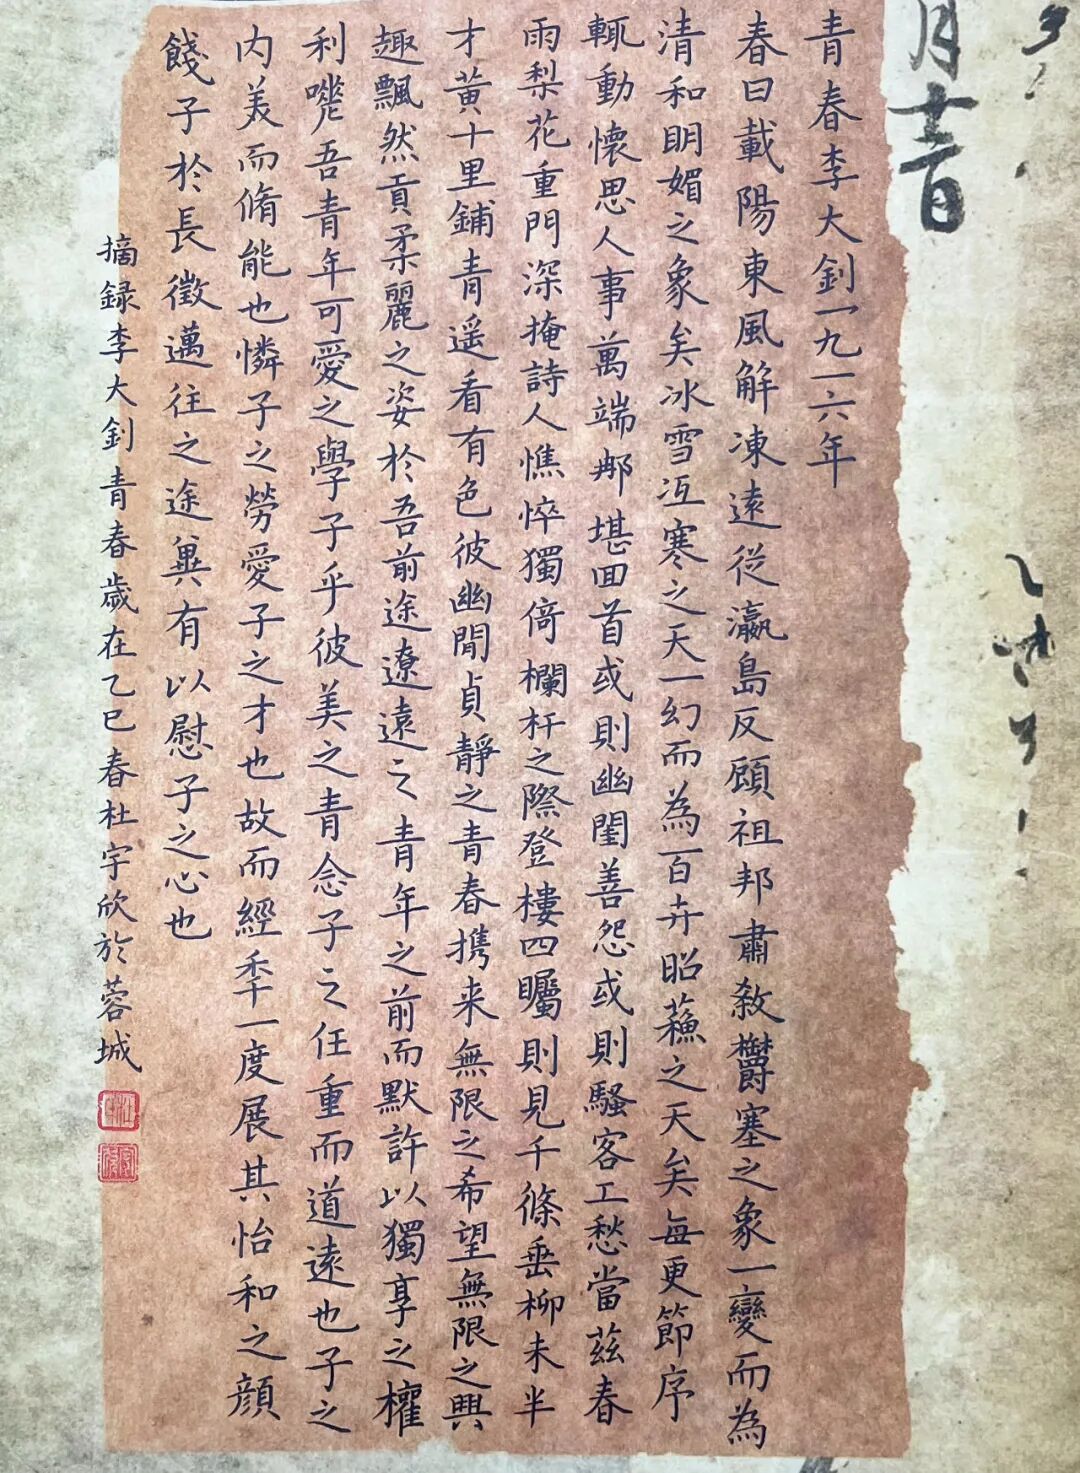 青春李大釗一九一六年
春日載陽東風解凍遠從瀛島反顧祖邦肅殺鬱塞之象一變而為
清和明媚之象矣冰雪冱寒之天一幻而為百卉昭蘓之天矣每更節序
輒動懷思人事萬端那堪回首或則幽閨善怨或則騷客工愁當茲春
雨梨花重門深掩詩人憔悴獨倚欄杆之際登樓四矚則見千條垂柳未半
才黃十里鋪青遥看有色彼幽閒貞靜之青春携来無限之希望無限之興
趣飄然貢柔麗之姿於吾前途遼遠之青年之前而默許以獨享之權
利嗟吾青年可愛之學子乎彼美之青念子之任重而道遠也子之
内美而脩能也憐子之勞愛子之才也故而經年一度展其怡和之顔
餞子於長徵邁往之途冀有以慰子之心也
摘録李大釗青春歲在乙巳春杜宇欣於蓉城
月十二日